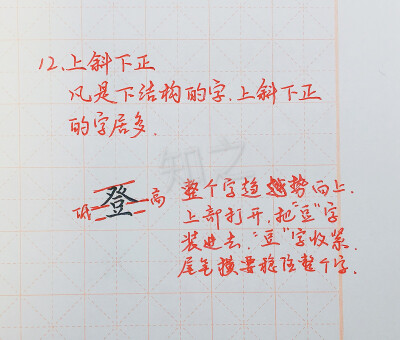 12.上斜下正
凡是下结构的字.上斜下正
的字居多.
知之
低 登 高
整个字趋越势向上.
上部打开,把“豆”字
装进去,“豆”字收紧.
尾笔横要稳住整个字.